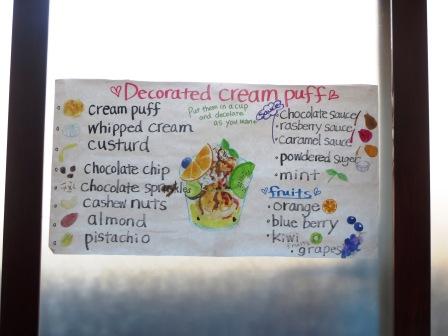 Decorated cream puff
Put them in a cup
and decolate
as you want
cream puff
whipped cream
custurd
chocolate chip
chocolate sprinkles
cashew nuts
almond
pistachio
sauce
chocolate sauce
rasberry sauce
caramel sauce
powdered suger
mint
fruits
orange
blue berry
kiwi
grapes